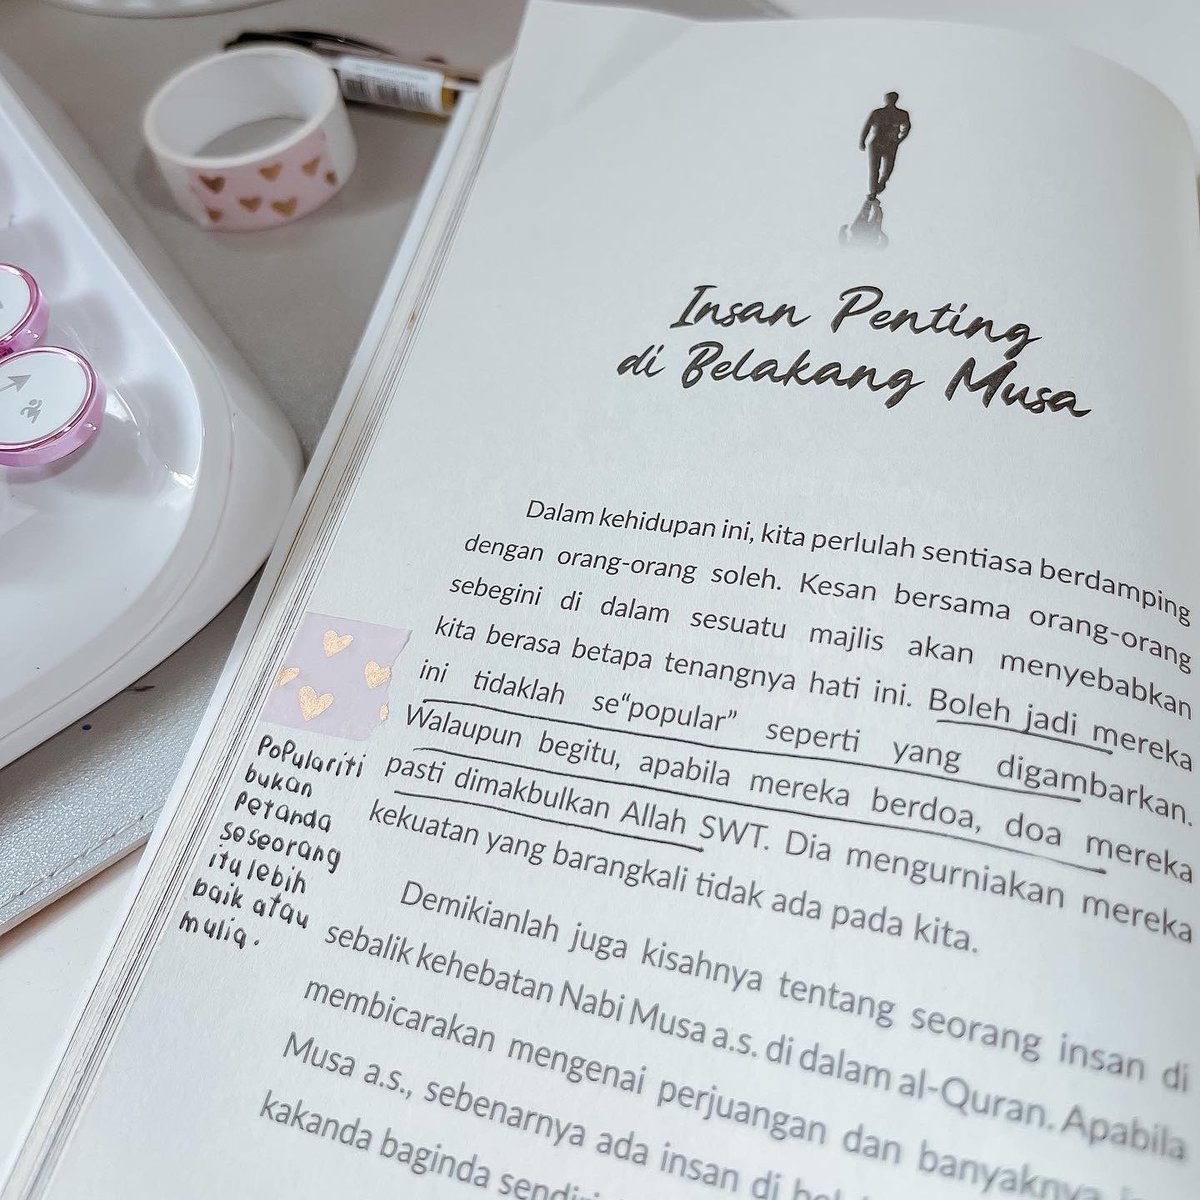 Insan Penting
di Belakang Musa
Dalam kehidupan ini, kita perlulah sentiasa berdamping
dengan orang-orang soleh. Kesan bersama orang-orang
sebegini di dalam sesuatu majlis akan menyebabkan
kita berasa betapa tenangnya hati ini. Boleh jadi mereka
ini tidaklah se“popular” seperti yang digambarkan.
Walaupun begitu, apabila mereka berdoa, doa mereka
pasti dimakbulkan Allah SWT. Dia mengurniakan mereka
kekuatan yang barangkali tidak ada pada kita.
Demikianlah juga kisahnya tentang seorang insan di
sebalik kehebatan Nabi Musa a.s. di dalam al-Quran. Apabila
membicarakan mengenai perjuangan dan banyaknya
Musa a.s., sebenarnya ada insan di
kakanda baginda
PoPulariti
bukan
Petanda
seseorang
itu lebih
baik atau
mulia.